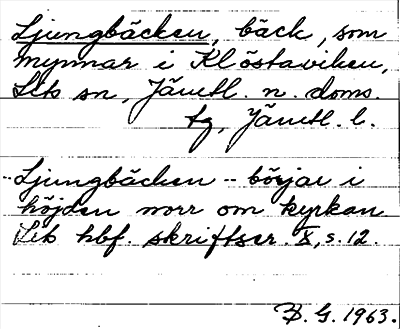 Ljungbäcken, bäck, som
mynnar i Klöstaviken,
Lits sn, Jämtl. n. doms.
tg, Jämtl. l.
Ljungbäcken -- börjar i
höjden norr om kyrkan
Lits hbf. skriftser. X, s. 12.
B. G. 1963.